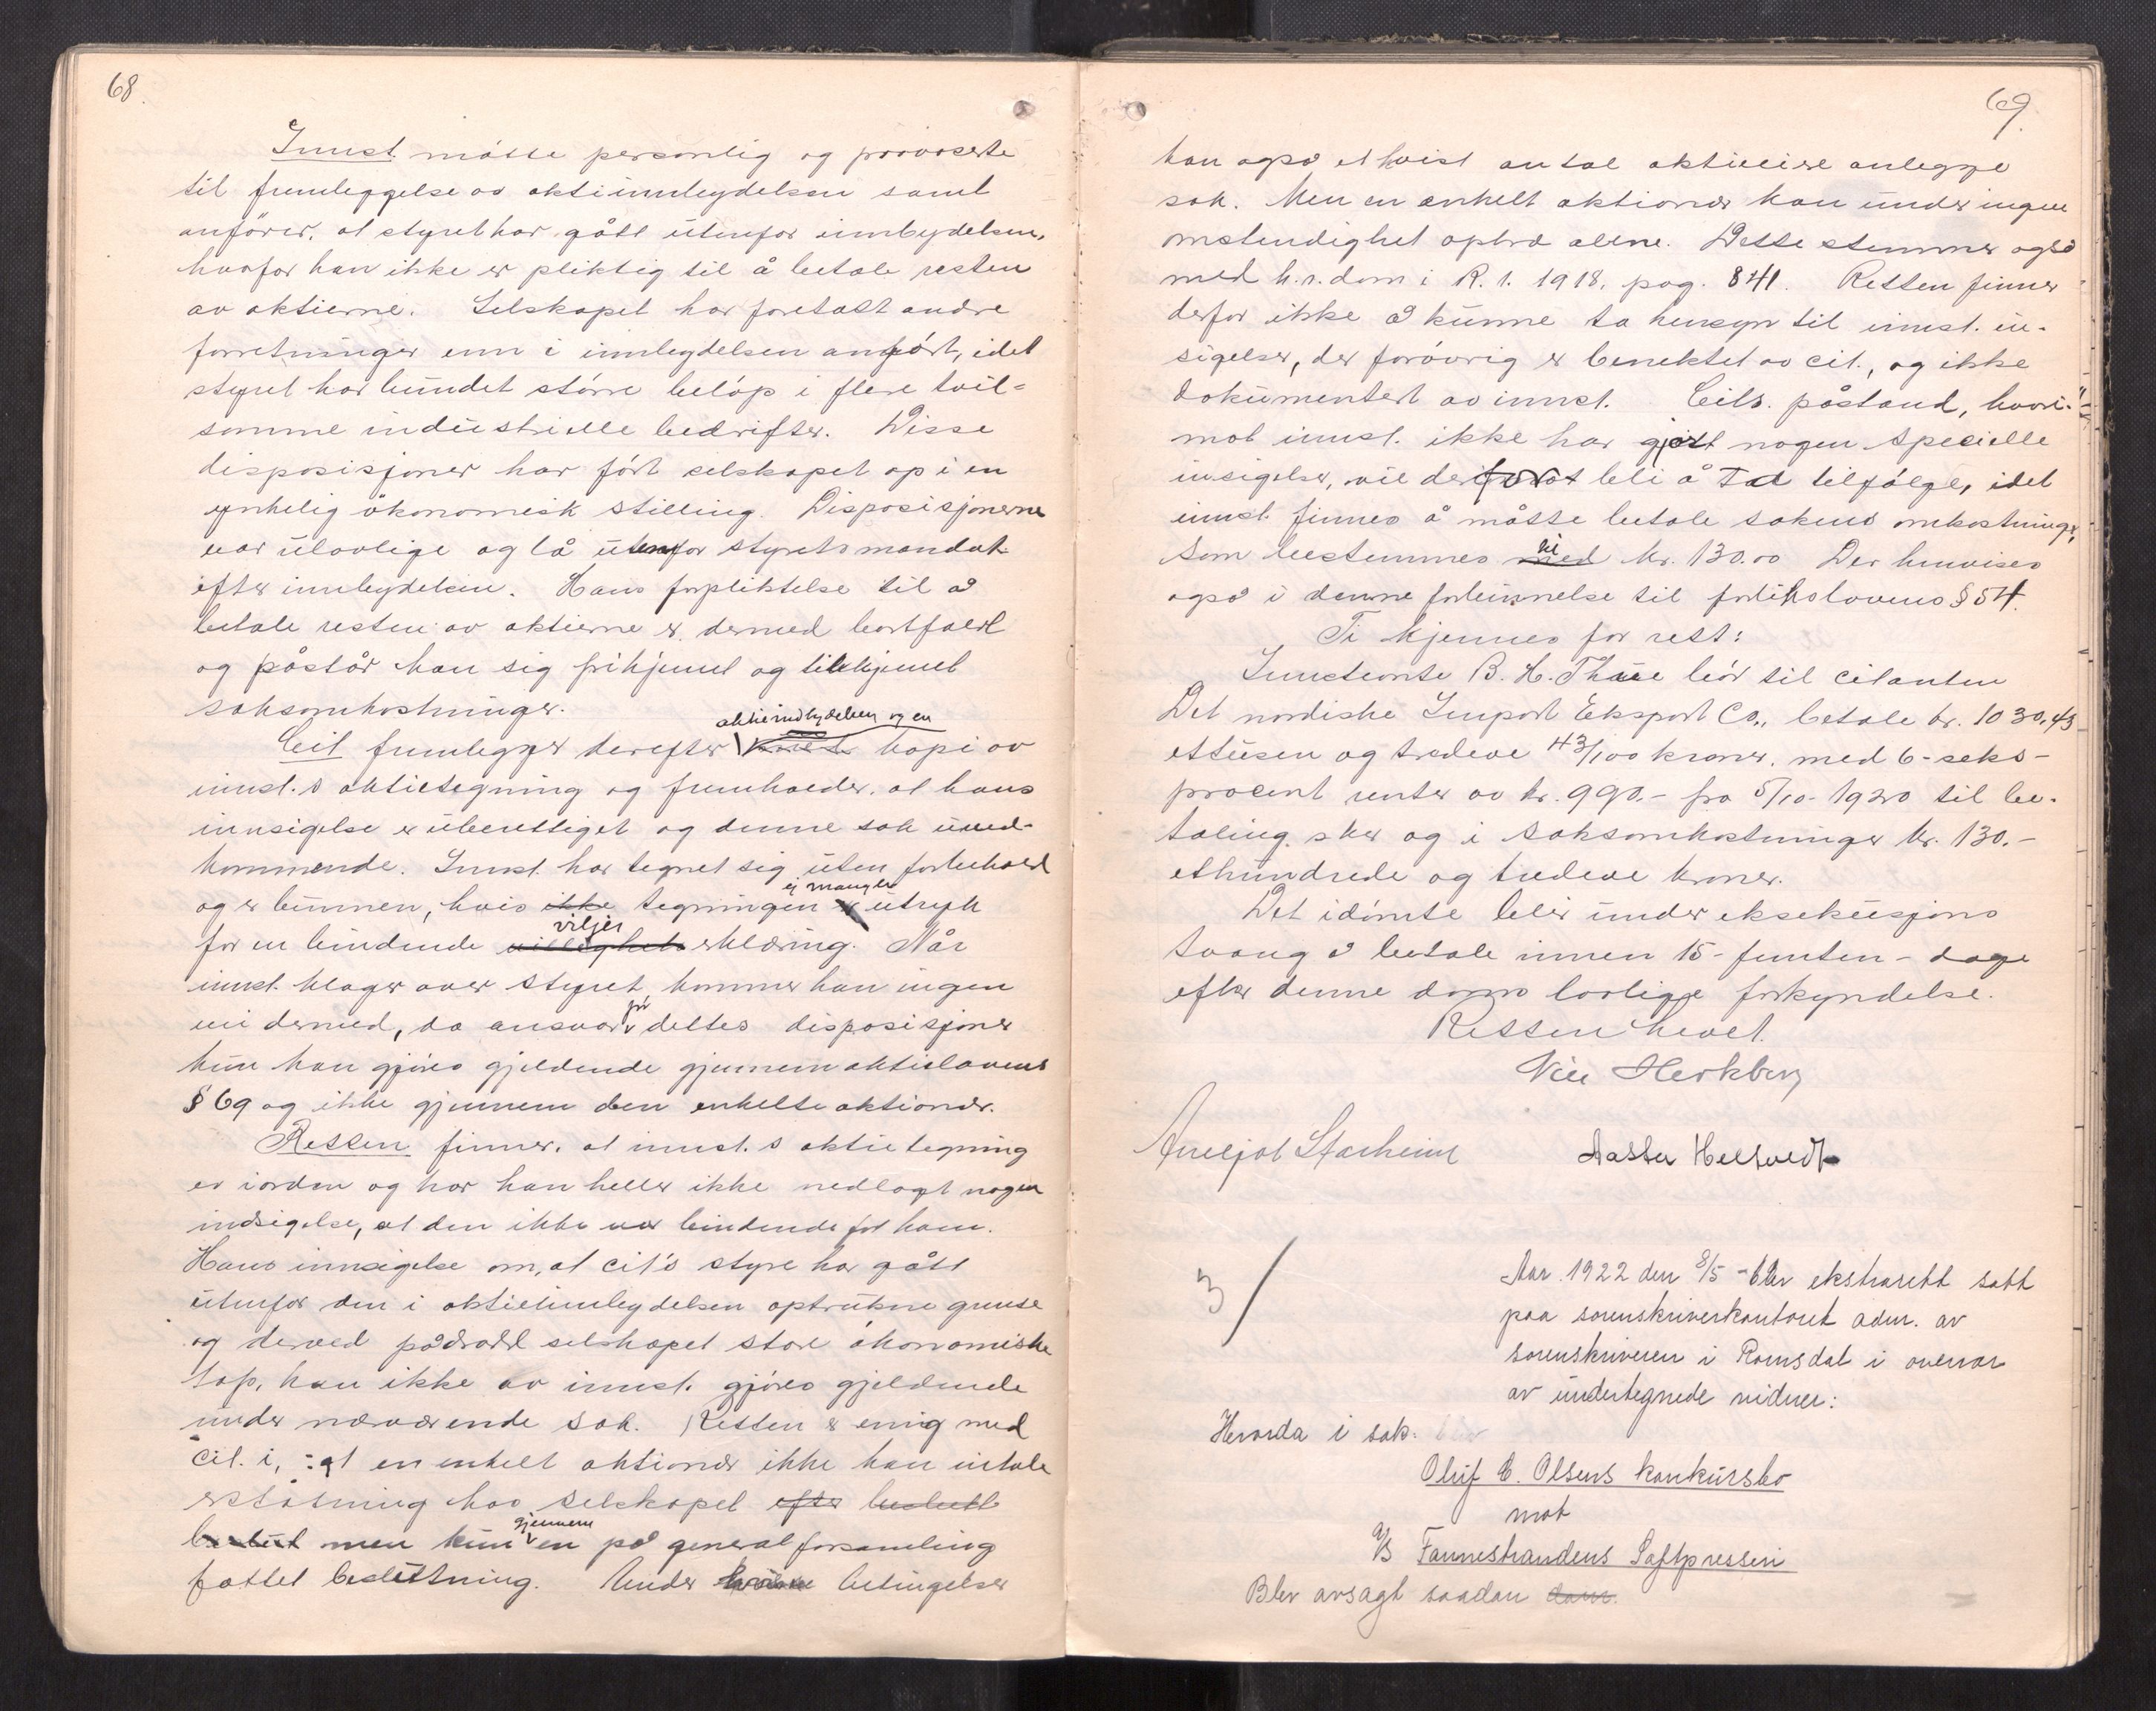 68.
Innst. møtte personlig og provoserte
til fremleggelse av aktieinnbydelsen samt
anfører, at styret har gått utenfor innbydelsen,
hvorfor han ikke er pliktig til å betale resten
av aktierne. Selskapet har foretatt andre
forretninger enn i innbydelsen anført, idet
styret har bundet større beløp i flere tvil-
somme industrielle bedrifter. Disse
disposisjoner har ført selskapet op i en
ynkelig økonomisk stilling. Disposisjonerne
var ulovlige og lå utenfor styrets mandat
efter innbydelsen. Hans forpliktelse til å
betale resten av aktierne er dermed bortfalt
og påstår han sig frikjent og tilkjent
saksomkostninger.
aktieindbydelsen og en
Cit. fremlegger derefter kopi av
innst.s aktietegning og fremholder, at hans
innsigelse er uberettiget og denne sak uved-
kommende. Innst. har tegnet sig uten forbehold
ej mangler
og er bunnen, hvis ikke tegningen er utryk
viljes
for en bindende villighets erklæring. Når
innst. klager over styret, kommer han ingen
for
vei dermed, da ansvar dettes disposisjoner
kun kan gjøres gjeldende gjennem aktielovens
§ 69 og ikke gjennem den enkelte aktionær.
Retten finner, at innst.s aktietegning
er iorden og har han heller ikke nedlagt nogen
indsigelse, at den ikke var bindende for ham.
Hans innsigelse om, at cit's styre har gått
utenfor den i aktieinnbydelsen optrukne grense
og derved pådradd selskapet store økonomiske
tap, kan ikke av innst. gjøres gjeldende
under nærværende sak. Retten er enig med
cit. i, at en enkelt aktionær ikke kan intale
erstatning hos selskapet efter beslutt
gjennem
beslut men kun en på generalforsamling
fattet beslutning. Under betingelser
69.
kan også et hvist antal aktieeiere anlegge
sak. Men en enkelt aktionær kan under ingen
omstendighet optræ alene. Dette stemmer også
med h.r.dom i R. t. 1918, pag. 841. Retten finner
derfor ikke å kunne ta hensyn til innst. in-
sigelser, der forøvrig er benektet av cit., og ikke
dokumentert av innst. Cits. påstand, hvori-
mot innst. ikke har gjort nogen specielle
insigelser, vil derfor bli å ta tilfølge, idet
innst. finnes å måtte betale sakens omkostninger,
til
som bestemmes med kr. 130.00 Der henvises
også i denne forbinnelse til forlikslovens § 54.
Ti kjennes for rett:
Innstevnte B. H. Thue bør til citanten
Det nordiske Import Eksport Co., betale kr. 1030,43
ettusen og tredeve 43/100 kroner, med 6 - seks -
procent renter av kr. 990.- fra 5/10- 1920 til be-
taling sker og i saksomkostninger kr. 130.-
ethundrede og tredeve kroner.
Det idømte blir under eksekusjons
tvang å betale innen 15 - femten - dage
efter denne doms lovlige forkyndelse.
Retten hevet.
Herkberg
Starheim
Aasta Heltvedt
3/
Aar 1922 den 8/5 - blev ekstrarett satt
paa sorenskriverkontoret adm. av
sorenskriveren i Romsdal i overvær
av undertegnede vidner:
Hvorda i sak:
Oluf E. Olsens konkursbo
mot
A/S Fannestrandens Saftpresseri
Blev avsagt saadan dom.